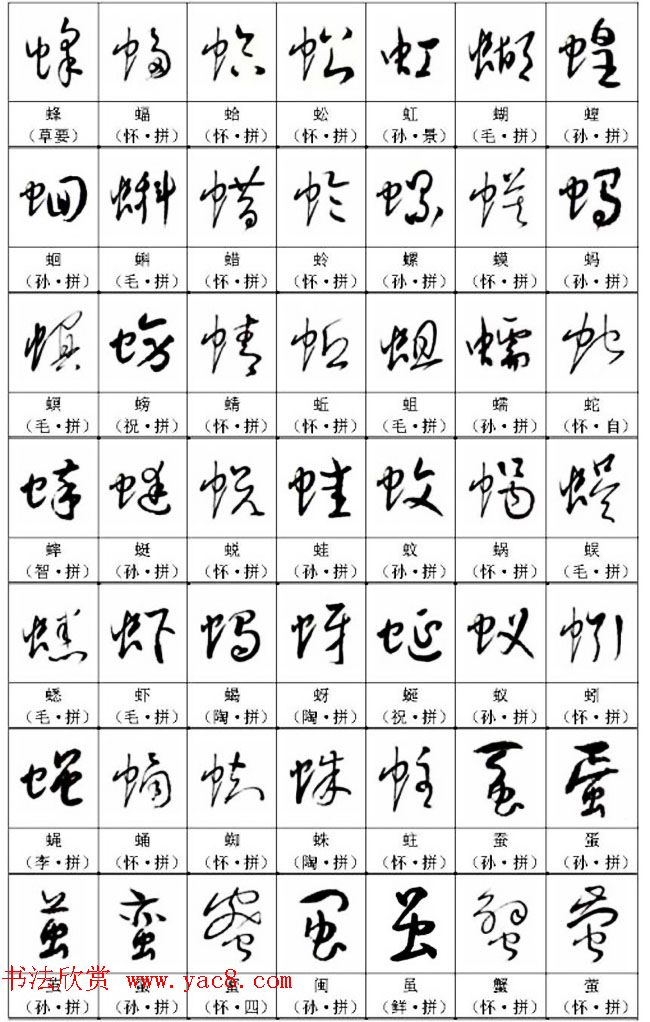 蜂 蝠 蛤 蚣 虹 蝴 蝗
（草要） （怀·拼） （怀·拼） （怀·拼） （孙·景） （毛·拼） （孙·拼）
蛔 蝌 蜡 蛉 螺 蟆 蚂
（孙·拼） （毛·拼） （怀·拼） （怀·拼） （孙·拼） （怀·拼） （孙·拼）
螟 螃 蜻 蚯 蛆 蠕 蛇
（毛·拼） （祝·拼） （怀·拼） （怀·拼） （毛·拼） （孙·拼） （怀·自）
蟀 蜓 蜕 蛙 蚊 蜗 蜈
（智·拼） （孙·拼） （怀·拼） （孙·拼） （孙·拼） （怀·拼） （毛·拼）
蟋 虾 蝎 蚜 蜒 蚁 蚓
（毛·拼） （毛·拼） （陶·拼） （陶·拼） （祝·拼） （孙·拼） （怀·拼）
蝇 蛹 蜘 蛛 蛀 蚕 蛋
（李·拼） （怀·拼） （怀·拼） （陶·拼） （怀·拼） （孙·拼） （孙·拼）
闽 虽 蟹 萤
（孙·拼） （孙·拼） （怀·四） （孙·拼） （鲜·拼） （怀·拼） （怀·拼）
书法欣赏 www.yac8.com